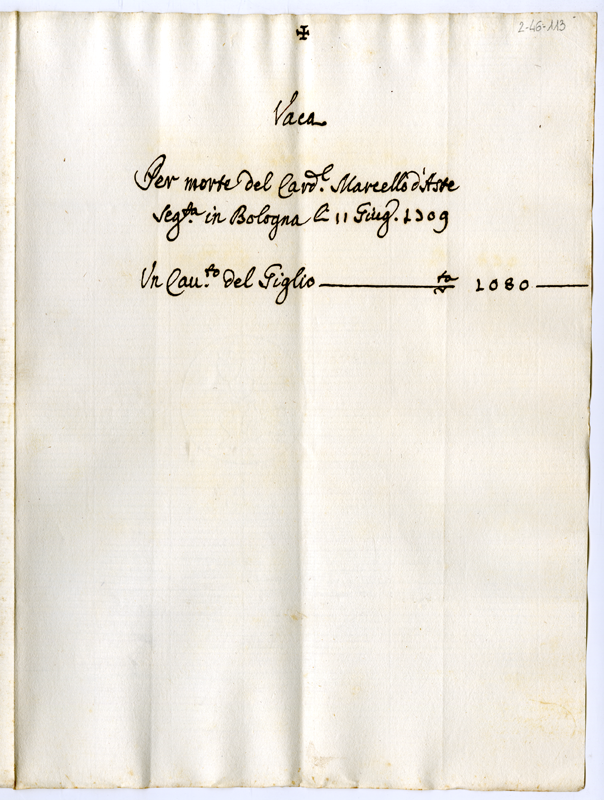 2-46-113
✠
Vaca
Per morte del Card.l Marcello d'Aste
Seg.ta in Bologna li 11 Giug.o 1709
Un Cau.to del Giglio — 1080 —